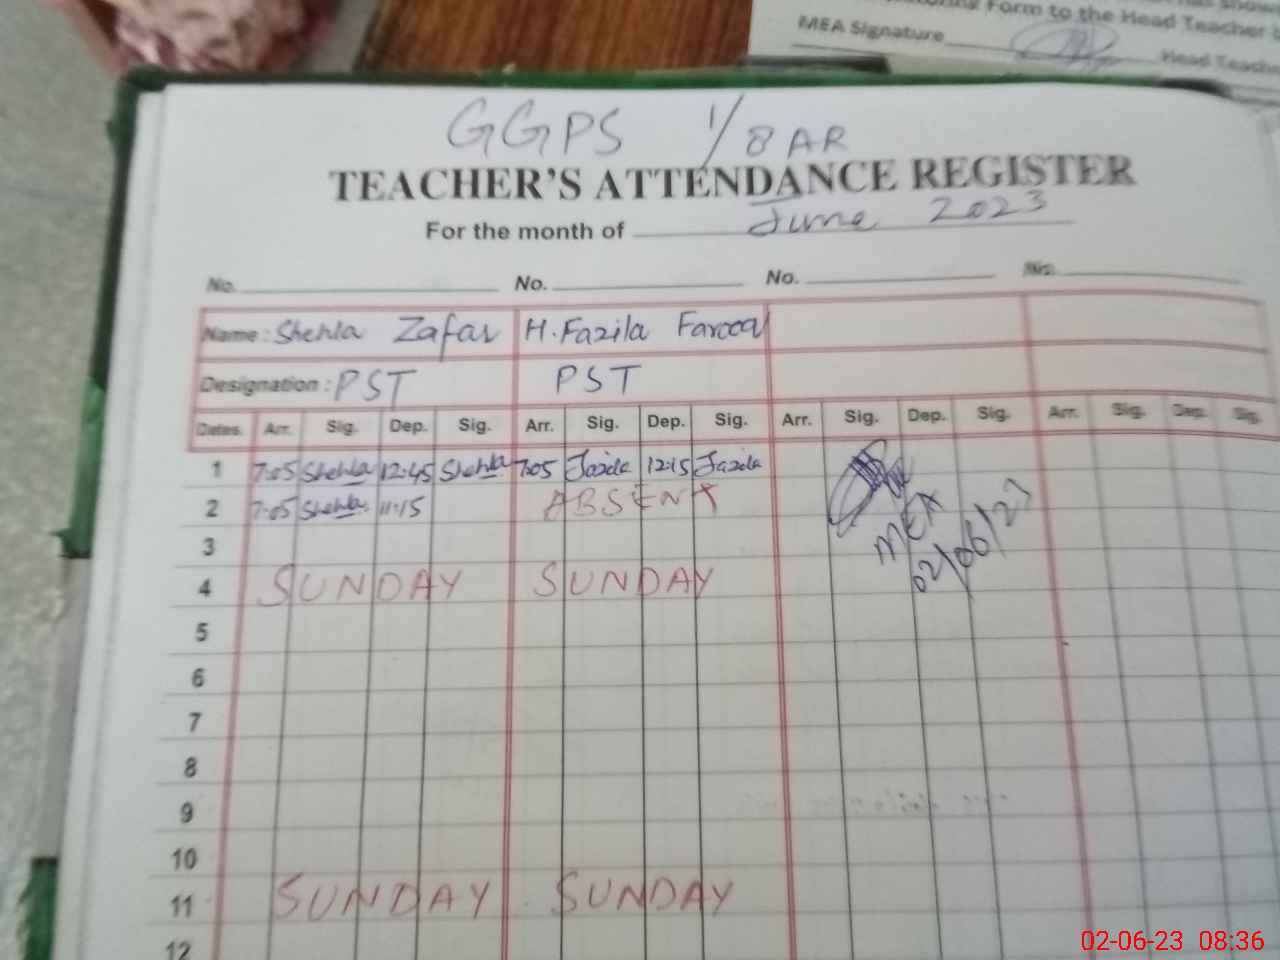 Form to the Head Teacher
MEA Signature
Head Teache
GGPS 1/8 AR
TEACHER'S ATTENDANCE REGISTER
For the month of June 2023
No. No. No. No.
Name : Shehla Zafar H. Fazila Farooq
Designation : PST PST
Dates. Arr. Sig. Dep. Sig. Arr. Sig. Dep. Sig. Arr. Sig. Dep. Sig. Arr. Sig. Dep. Sig.
1 7:05 Shehla 12:45 Shehla 7:05 Fazila 12:15 Fazila
2 7:05 Shehla 11:15 ABSENT
MEA
02/06/23
3
4 SUNDAY SUNDAY
5
6
7
8
9
10
11 SUNDAY SUNDAY
12
02-06-23 08:36